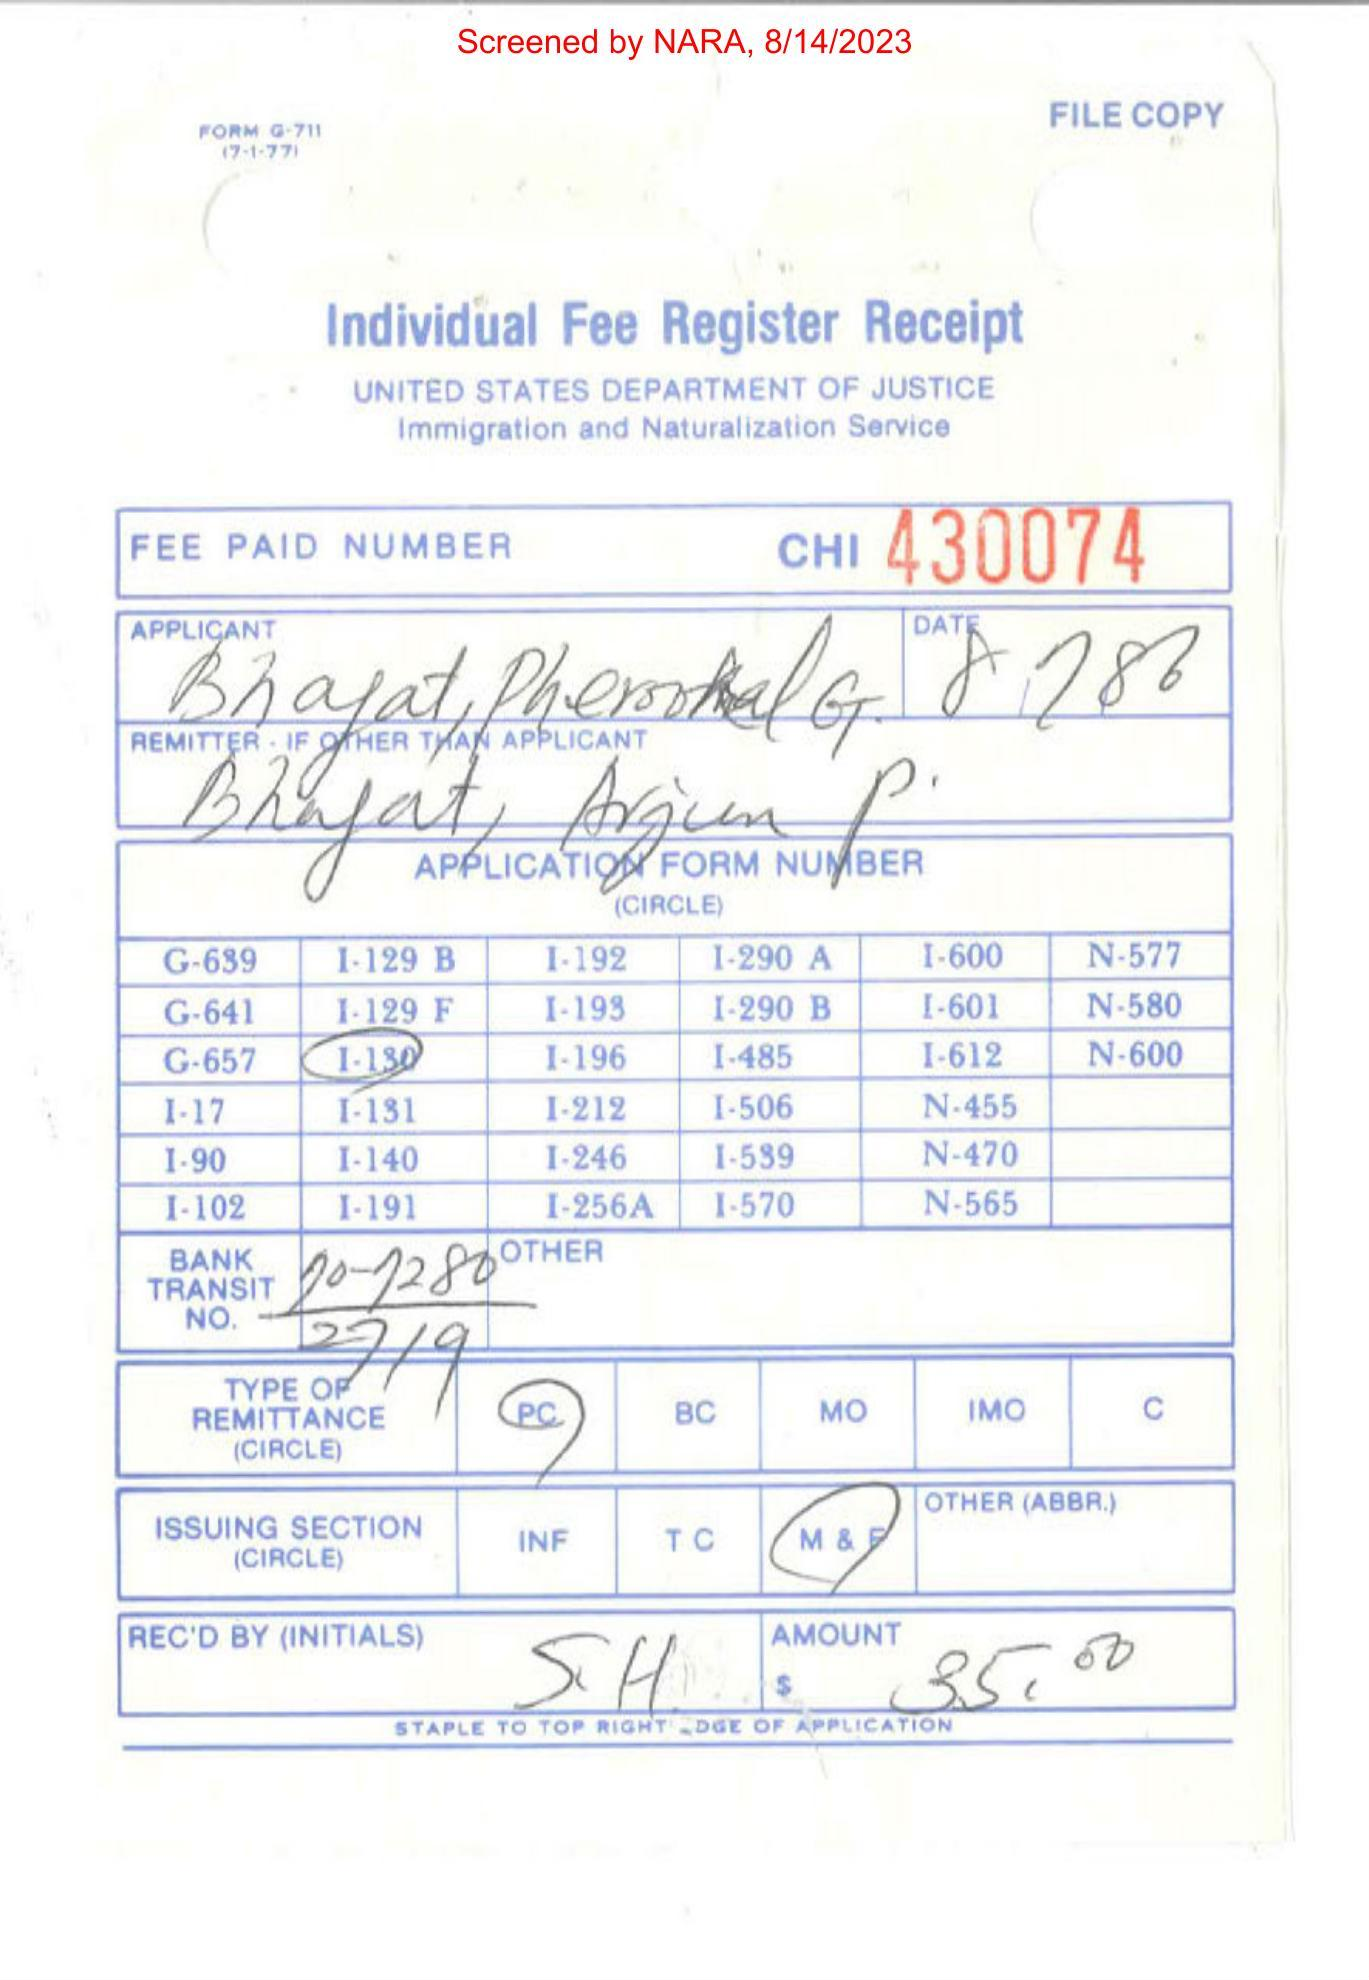 Screened by NARA, 8/14/2023
FILE COPY
FORM G-711
(7-1-77)
Individual Fee Register Receipt
UNITED STATES DEPARTMENT OF JUSTICE
Immigration and Naturalization Service
FEE PAID NUMBER CHI 430074
APPLICANT DATE
Bhagat, G.
REMITTER - IF OTHER THAN APPLICANT
Bhagat, Arjun P.
APPLICATION FORM NUMBER
(CIRCLE)
G-639 I-129 B I-192 I-290 A I-600 N-577
G-641 I-129 F I-193 I-290 B I-601 N-580
G-657 I-130 I-196 I-485 I-612 N-600
I-17 I-131 I-212 I-506 N-455
I-90 I-140 I-246 I-539 N-470
I-102 I-191 I-256A I-570 N-565
BANK TRANSIT NO. 70-7280 OTHER
2719
TYPE OF REMITTANCE (CIRCLE) PC BC MO IMO C
ISSUING SECTION (CIRCLE) INF T C M & F OTHER (ABBR.)
REC'D BY (INITIALS) S.H. AMOUNT
$ 35.00
STAPLE TO TOP RIGHT EDGE OF APPLICATION